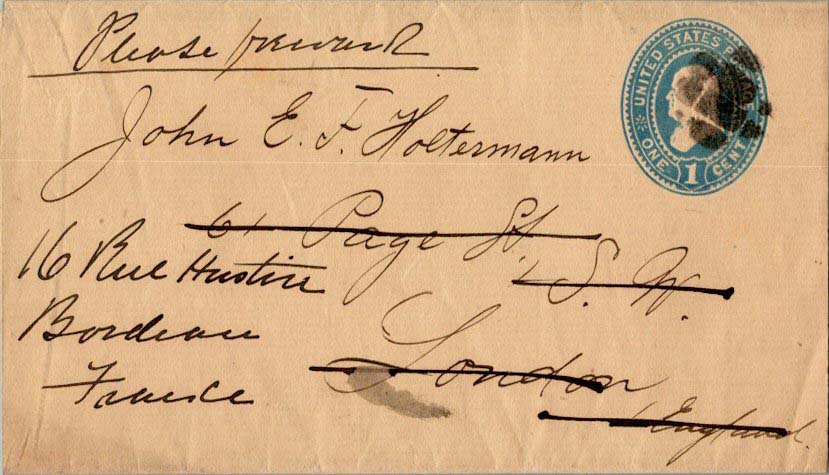 Please forward
John E. F. Holtermann
61 Page St.
S. W.
London
England.
16 Rue Hustin
Bordeaux
France
UNITED STATES POSTAGE
ONE 1 CENT